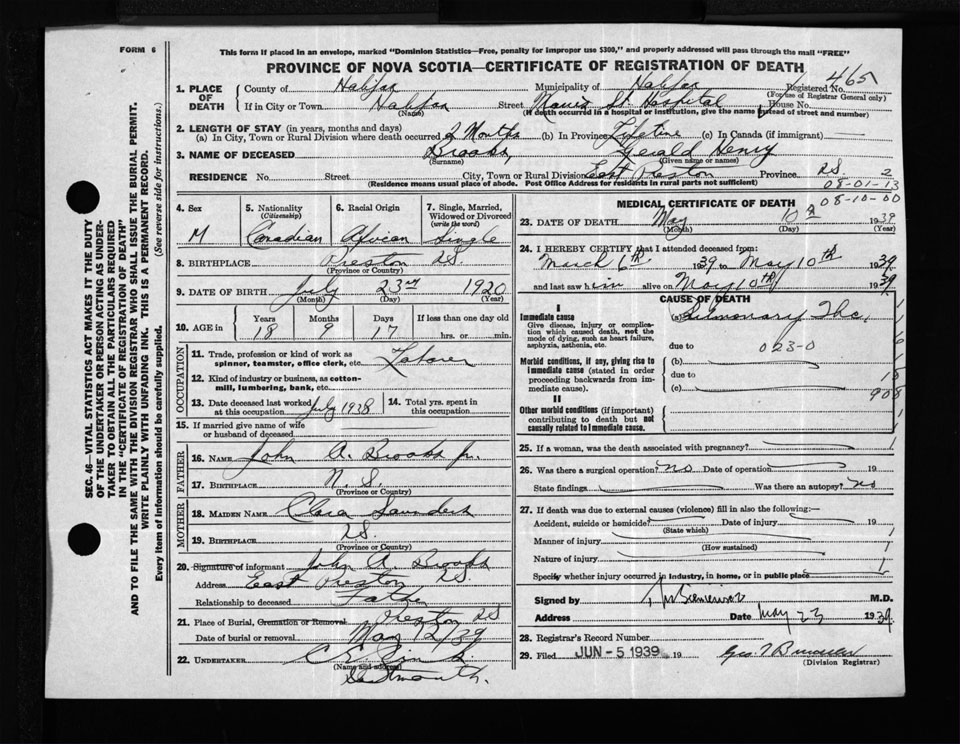 FORM 6
This form if placed in an envelope, marked "Dominion Statistics—Free, penalty for improper use $300," and properly addressed will pass through the mail "FREE"
PROVINCE OF NOVA SCOTIA—CERTIFICATE OF REGISTRATION OF DEATH
465
1. PLACE OF DEATH
County of Halifax Municipality of Halifax Registered No.
(For use of Registrar General only)
If in City or Town Halifax Street St Hospital House No.
(Name) (If death occurred in a hospital or institution, give the name instead of street and number)
2. LENGTH OF STAY (in years, months and days)
(a) In City, Town or Rural Division where death occurred 2 Months (b) In Province Lifetime (c) In Canada (if immigrant)
3. NAME OF DECEASED Brooks, Gerald Henry
(Surname) (Given name or names)
RESIDENCE No. Street City, Town or Rural Division East Preston Province N.S. 2
(Residence means usual place of abode. Post Office Address for residents in rural parts not sufficient)
08-01-13
08-10-00
4. Sex M
5. Nationality (Citizenship) Canadian
6. Racial Origin African
7. Single, Married, Widowed or Divorced (write the word) Single
8. BIRTHPLACE Preston N.S.
(Province or Country)
9. DATE OF BIRTH July 23rd 1920
(Month) (Day) (Year)
10. AGE in Years Months Days If less than one day old
18 9 17 hrs. or min.
OCCUPATION
11. Trade, profession or kind of work as spinner, teamster, office clerk, etc. Laborer
12. Kind of industry or business, as cotton-mill, lumbering, bank, etc.
13. Date deceased last worked at this occupation July 1938
14. Total yrs. spent in this occupation
15. If married give name of wife or husband of deceased
FATHER
16. Name John A. Brooks Jr.
17. Birthplace N. S.
(Province or Country)
MOTHER
18. Maiden Name Clara Saunders
19. Birthplace N.S.
(Province or Country)
20. Signature of informant John A. Brooks
Address East Preston N.S.
Relationship to deceased Father
21. Place of Burial, Cremation or Removal Preston N.S.
Date of burial or removal May 12/39
22. UNDERTAKER
(Name and address)
Dartmouth.
MEDICAL CERTIFICATE OF DEATH
23. DATE OF DEATH May 10th 1939
(Month) (Day) (Year)
24. I HEREBY CERTIFY that I attended deceased from:
March 6th 1939 to May 10th 1939
and last saw him alive on May 10th 1939
CAUSE OF DEATH
I
Immediate cause
Give disease, injury or complication which caused death, not the mode of dying, such as heart failure, asphyxia, asthenia, etc.
(a) Pulmonary Tbc.
due to 023-0
Morbid conditions, if any, giving rise to immediate cause (stated in order proceeding backwards from immediate cause).
(b)
due to
(c)
908
II
Other morbid conditions (if important) contributing to death but not causally related to immediate cause.
25. If a woman, was the death associated with pregnancy?
26. Was there a surgical operation? no Date of operation 19
State findings Was there an autopsy? no
27. If death was due to external causes (violence) fill in also the following:—
Accident, suicide or homicide? Date of injury 19
(State which)
Manner of injury
(How sustained)
Nature of injury
Specify whether injury occurred in industry, in home, or in public place
Signed by M.D.
Address Date May 23 1939
28. Registrar's Record Number
29. Filed JUN - 5 1939 19
(Division Registrar)
SEC. 46—VITAL STATISTICS ACT MAKES IT THE DUTY
OF THE UNDERTAKER OR PERSON ACTING AS UNDER-
TAKER TO OBTAIN ALL THE PARTICULARS REQUIRED
IN THE "CERTIFICATE OF REGISTRATION OF DEATH"
AND TO FILE THE SAME WITH THE DIVISION REGISTRAR WHO SHALL ISSUE THE BURIAL PERMIT.
WRITE PLAINLY WITH UNFADING INK. THIS IS A PERMANENT RECORD.
Every item of information should be carefully supplied. (See reverse side for instructions.)